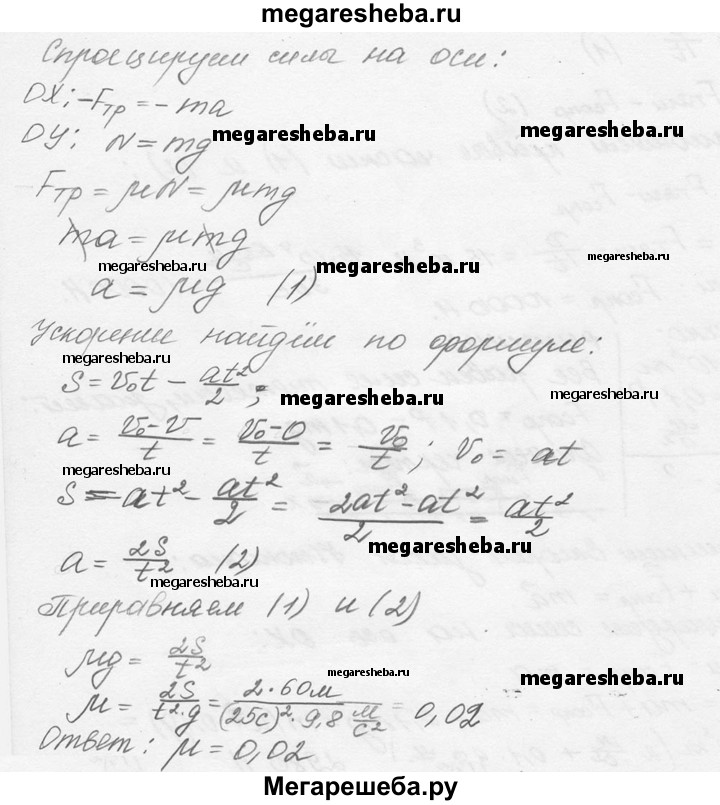 megaresheba.ru
Спроецируем силы на оси:
OX: -Fтр = - ma
OY: N = mg megaresheba.ru megaresheba.ru
Fтр = μN = μmg
megaresheba.ru
ma = μmg
megaresheba.ru megaresheba.ru
a = μg (1)
Ускорение найдём по формуле:
megaresheba.ru megaresheba.ru
S = v₀t - at²/2; megaresheba.ru
a = (v₀-v)/t = (v₀-0)/t = v₀/t; v₀ = at
megaresheba.ru megaresheba.ru
S = at² - at²/2 = (2at²-at²)/2 = at²/2
megaresheba.ru
a = 2S/t² (2)
megaresheba.ru megaresheba.ru
Приравняем (1) и (2)
μg = 2S/t²
megaresheba.ru megaresheba.ru
μ = 2S/(t²·g) = (2·60м)/((25с)²·9,8 м/с²) = 0,02
Ответ: μ = 0,02
megaresheba.ru
Мегарешеба.ру